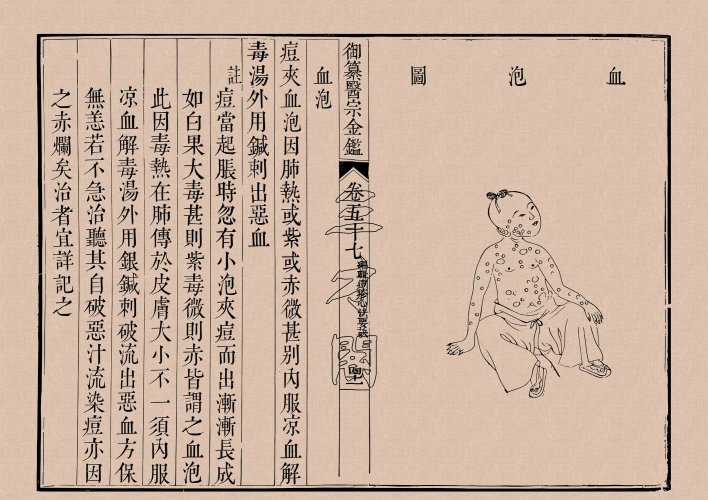 血泡圖
御纂醫宗金鑑
卷五十七
血泡
痘夾血泡因肺熱或紫或赤微甚别内服凉血解
毒湯外用鍼刺出惡血
註
痘當起脹時忽有小泡夾痘而出漸漸長成
如白果大毒甚則紫毒微則赤皆謂之血泡
此因毒熱在肺傳於皮膚大小不一須内服
凉血解毒湯外用銀鍼刺破流出惡血方保
無恙若不急治聽其自破惡汁流染痘亦因
之赤爛矣治者宜詳記之